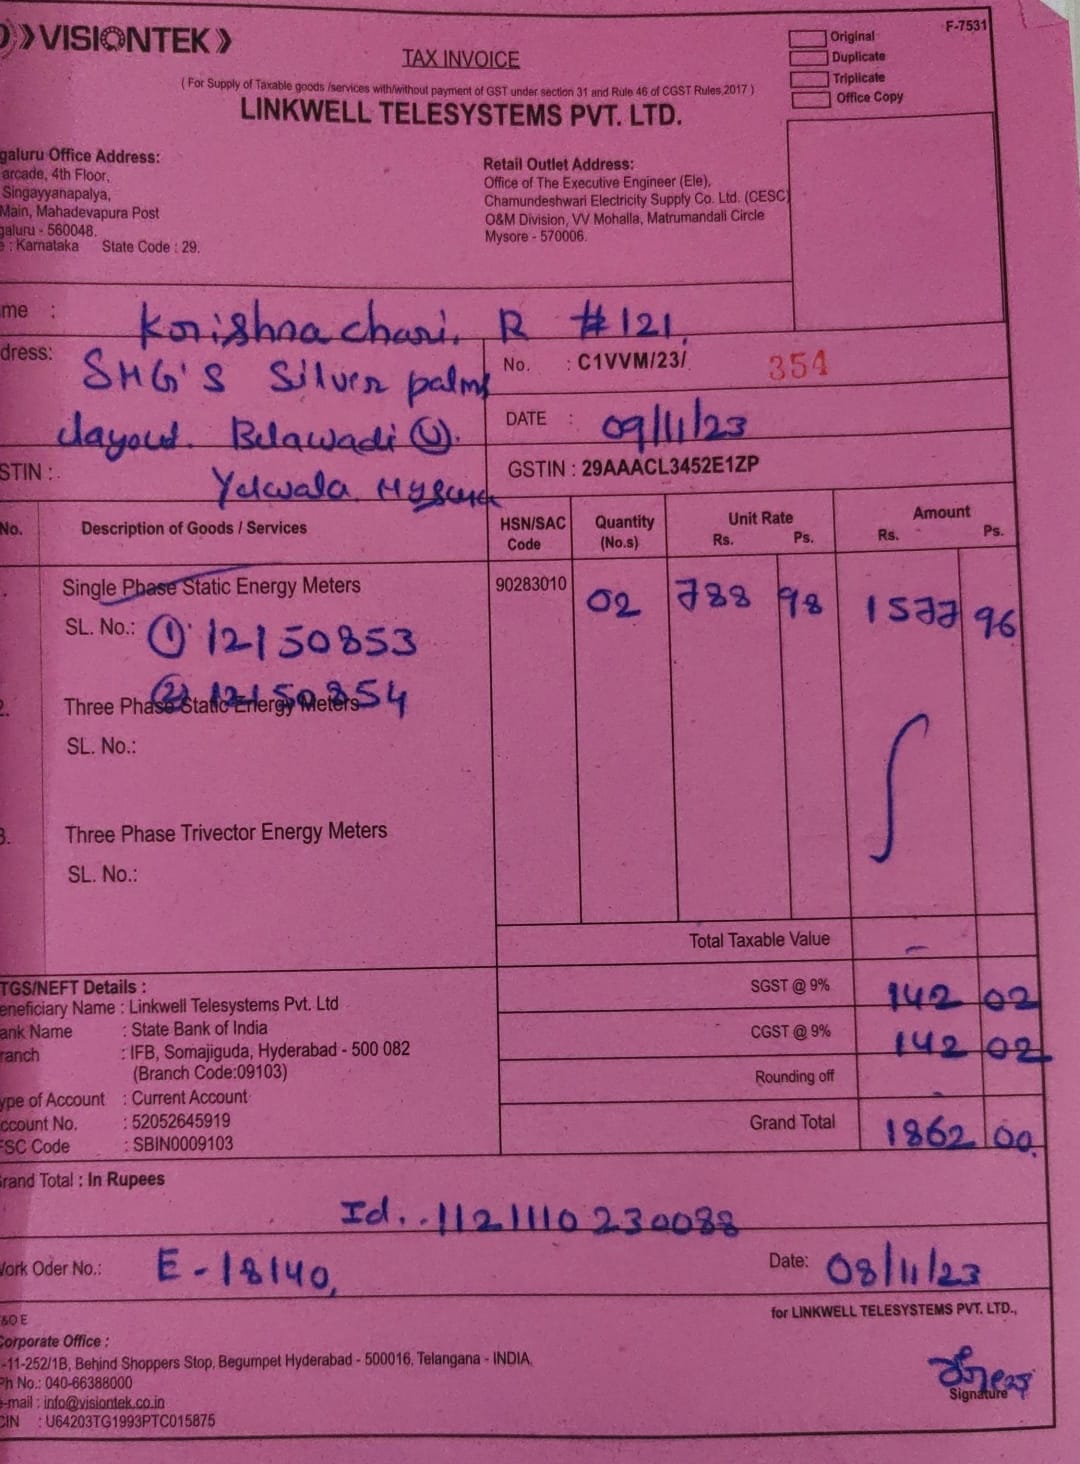 VISIONTEK
F-7531
TAX INVOICE
Original
Duplicate
Triplicate
Office Copy
( For Supply of Taxable goods /services with/without payment of GST under section 31 and Rule 46 of CGST Rules,2017 )
LINKWELL TELESYSTEMS PVT. LTD.
galuru Office Address:
arcade, 4th Floor,
Singayyanapalya,
Main, Mahadevapura Post
galuru - 560048.
e : Karnataka State Code : 29.
Retail Outlet Address:
Office of The Executive Engineer (Ele),
Chamundeshwari Electricity Supply Co. Ltd. (CESC)
O&M Division, VV Mohalla, Matrumandali Circle
Mysore - 570006.
me : Krishna chari. R #121,
dress: SHG'S Silver palms
layout. Belawadi (V).
Yelwala Mysuru
No. : C1VVM/23/ 354
DATE : 09/11/23
STIN :
GSTIN : 29AAACL3452E1ZP
No. Description of Goods / Services HSN/SAC Code Quantity (No.s) Unit Rate Rs. Ps. Amount Rs. Ps.
Single Phase Static Energy Meters 90283010 02 788 98 1577 96
SL. No.: (1) 12150853
(2) 12150854
2. Three Phase Static Energy Meters
SL. No.:
3. Three Phase Trivector Energy Meters
SL. No.:
Total Taxable Value -
SGST @ 9% 142 02
CGST @ 9% 142 02
Rounding off -
Grand Total 1862 00.
TGS/NEFT Details :
eneficiary Name : Linkwell Telesystems Pvt. Ltd
ank Name : State Bank of India
ranch : IFB, Somajiguda, Hyderabad - 500 082
(Branch Code:09103)
ype of Account : Current Account
ccount No. : 52052645919
FSC Code : SBIN0009103
rand Total : In Rupees
Id. . 1121110230088
Work Oder No.: E-18140, Date: 08/11/23
&O E
for LINKWELL TELESYSTEMS PVT. LTD.,
Corporate Office :
-11-252/1B, Behind Shoppers Stop, Begumpet Hyderabad - 500016, Telangana - INDIA.
Ph No.: 040-66388000
e-mail : info@visiontek.co.in
CIN : U64203TG1993PTC015875
Signature